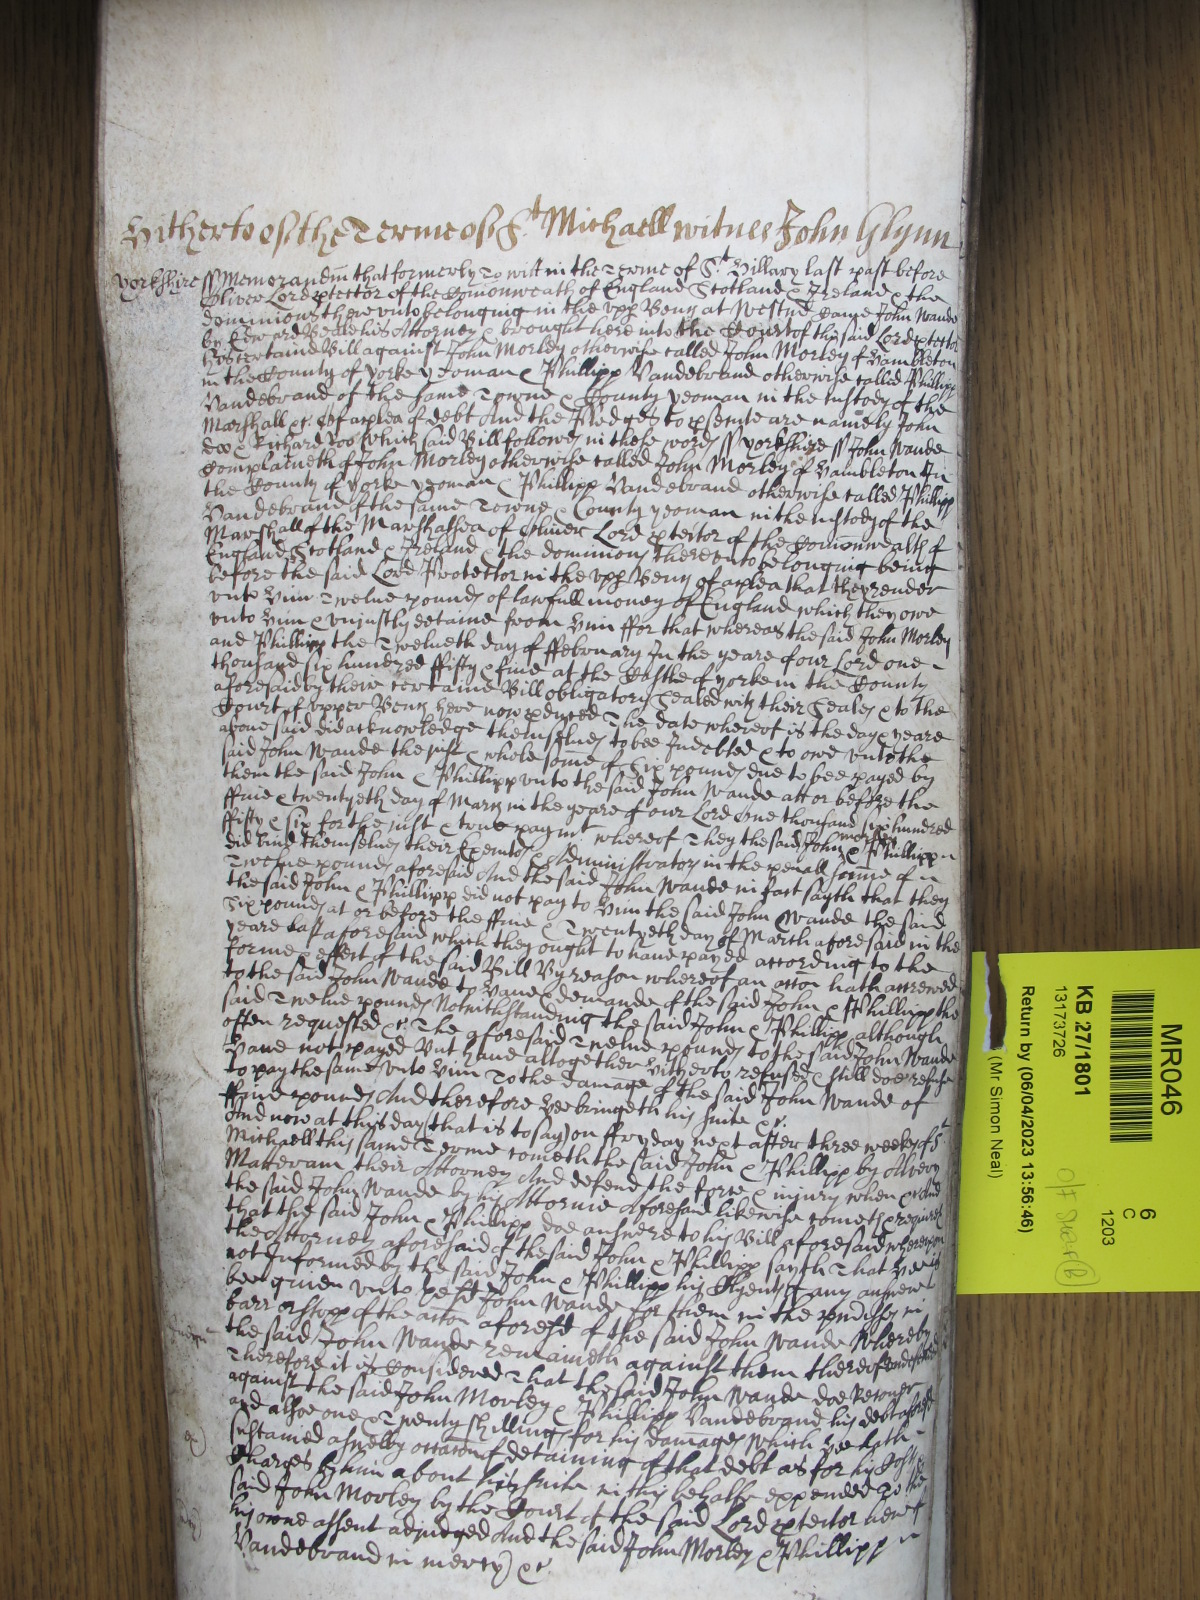 Hitherto of the Terme of St Michaell witnes John Glynn
Yorkshire ss Memorandm that formerly To witt in the Terme of St. Hillary last past before
Oliver Lord ptector of the Comonweath of England Scotland & Ireland & the
dominions thereunto belonging in the upp Bench at Westmr Came John Wande
by Edward his Attorney & brought here into the Court of the said Lord ptector
his certaine Bill against John Morley otherwise called John Morley of Hambleton
in the County of Yorke yeoman & Phillipp Vandebrand otherwise called Phillipp
Vandebrand of the same Towne & County yeoman in the Custody of the
Marshall &c. of a plea of debt And the Pledges to psecute are namely John
Doo & Richard Roo which said Bill followes in these words ss Yorkshire ss John Wande
Complaineth of John Morley otherwise called John Morley of Hambleton In
the County of Yorke yeoman & Phillipp Vandebrand otherwise called Phillipp
Vandebrand of the same Towne & County yeoman in the custody of the
Marshall of the Marshalsea of Oliver Lord ptector of the Comonwealth of
England Scotland & Ireland & the dominions thereunto belonging being
before the said Lord Protector in the upp Bench of a plea that they render
unto him Twelve pounds of lawfull money of England which they owe
unto him & unjustly detaine from him ffor that whereas the said John Morley
and Phillipp the Twelueth day of ffebruary In the yeare of our Lord one
thousand six hundred ffifty & fiue at the Castle of Yorke in the County
aforesaid by their certaine Bill obligatory sealed with their Seales & to the
Court of upper Bench here now pduced The date whereof is the day & yeare
aboue said did acknowledge themselues to bee Indebted & to owe unto the
said John Wande the just & whole some of six pounds due to bee payed by
them the said John & Phillipp unto the said John Wande att or before the
ffiue & twentyeth day of March in the yeare of our Lord one thousand six hundred
ffifty & six for the just & true paymt whereof They the said John Morley & Phillipp
did bind themselues their Executors & Administrators in the penall some of
Twelue pounds aforesaid And the said John Wande in fact sayth that they
the said John & Phillipp did not pay to him the said John Wande the said
six pounds at or before the ffiue & Twentyeth day of March aforesaid in the
yeare last aforesaid which they ought to haue payed according to the
forme & effect of the said Bill By reason whereof an accon hath accrewed
to the said John Wande to haue & demande of the said John & Phillipp the
said Twelue pounds Notwithstanding the said John & Phillipp although
often requested &c. The aforesaid Twelue pounds to the said John Wande
haue not payed but haue altogether hitherto refused & still doe refuse
to pay the same unto him To the damage of the said John Wande of
ffiue pounds And therefore hee bringeth his suite &c.
And now at this day (that is to say) on ffryday next after three weeks of St
Michaell this same Terme cometh the said John & Phillipp by
Matteram their Attorney And defend the force & injury when &c And
the said John Wande by his Attornie aforesaid likewise cometh & requireth
that the said John & Phillipp doe answere to his Bill aforesaid whereupon
the Attorney aforesaid of the said John & Phillipp sayth That hee is
not Informed by the said John & Phillipp his Clyents of any answere to
bee giuen unto ye sd John Wande for them in the pmisses in
barr or stopp of the accon aforesd of the said John Wande whereby
the said John Wande remaineth against them thereof undefended
Therefore it is Considered That the said John Wande doe Recouer
against the said John Morley & Phillipp Vandebrand his debt aforesd
and alsoe one & Twenty shillings for his damages which hee hath
sustained aswell by occasion of detaining of that debt as for his Costs &
Charges by him about his suite in this behalfe expended To the
said John Morley by the Court of the said Lord ptector here of
his owne assent adjudged And the said John Morley & Phillipp
Vandebrand in mercy &c.
MR046
6
C
1203
KB 27/1801
13173726
Return by (06/04/2023 13:56:46)
(Mr Simon Neal)